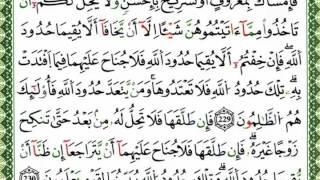 فَإِمْسَاكٌ بِمَعْرُوفٍ أَوْ تَسْرِيحٌ بِإِحْسَانٍ وَلَا يَحِلُّ لَكُمْ أَن
تَأْخُذُوا مِمَّا ءَاتَيْتُمُوهُنَّ شَيْئًا إِلَّا أَن يَخَافَا أَلَّا يُقِيمَا حُدُودَ
اللَّهِ فَإِنْ خِفْتُمْ أَلَّا يُقِيمَا حُدُودَ اللَّهِ فَلَا جُنَاحَ عَلَيْهِمَا فِيمَا افْتَدَتْ
بِهِ تِلْكَ حُدُودُ اللَّهِ فَلَا تَعْتَدُوهَا وَمَن يَتَعَدَّ حُدُودَ اللَّهِ فَأُولَٰئِكَ
هُمُ الظَّالِمُونَ (229) فَإِن طَلَّقَهَا فَلَا تَحِلُّ لَهُ مِن بَعْدُ حَتَّىٰ تَنكِحَ
زَوْجًا غَيْرَهُ فَإِن طَلَّقَهَا فَلَا جُنَاحَ عَلَيْهِمَا أَن يَتَرَاجَعَا إِن ظَنَّا أَن
يُقِيمَا حُدُودَ اللَّهِ وَتِلْكَ حُدُودُ اللَّهِ يُبَيِّنُهَا لِقَوْمٍ يَعْلَمُونَ (230)